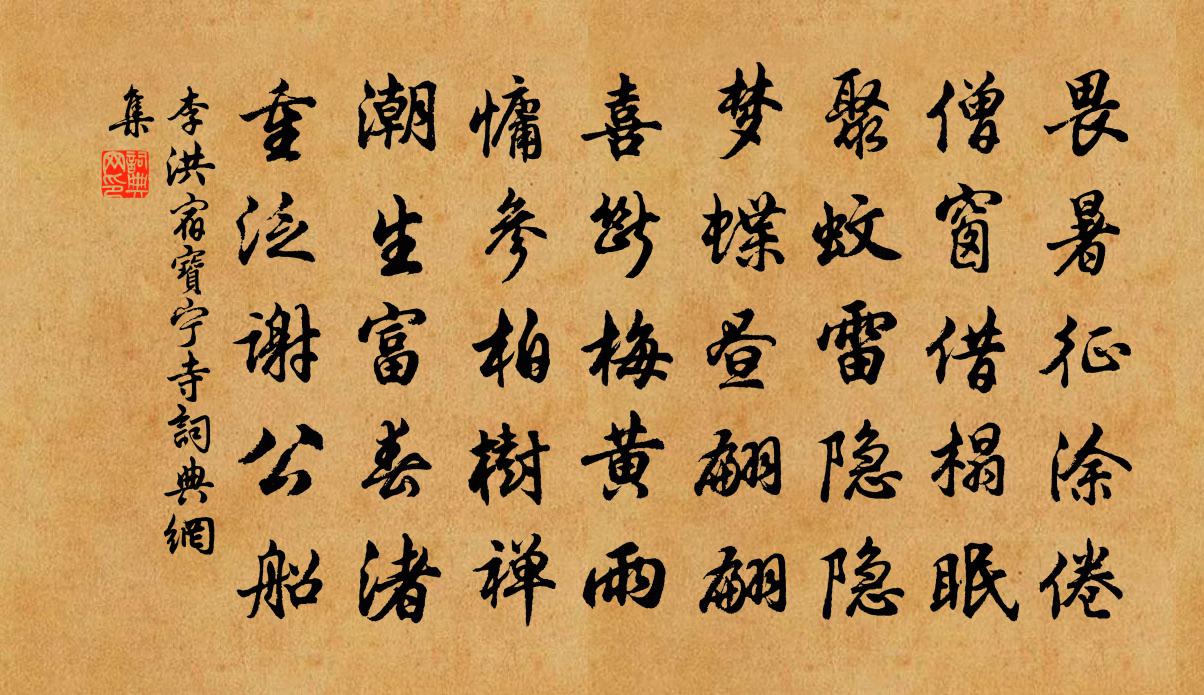 畏暑征涂倦
僧窗借榻眠
聚蚊雷隐隐
梦蝶昼翩翩
喜断梅黄雨
慵参柏树禅
潮生富春渚
重泛谢公船
李洪宿寶宁寺詞典網
集
詞典
网印